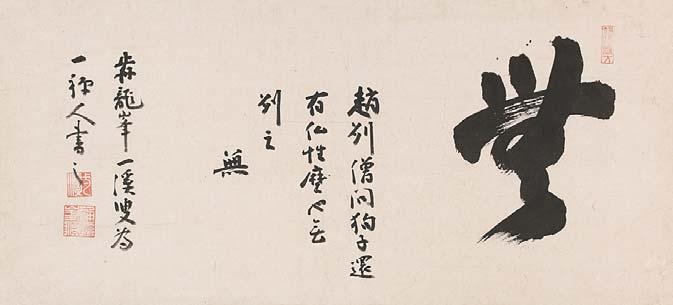 無
趙州僧問狗子還
有仏性麼也无
州云
無
前龍峯一溪叟為
一禅人書之